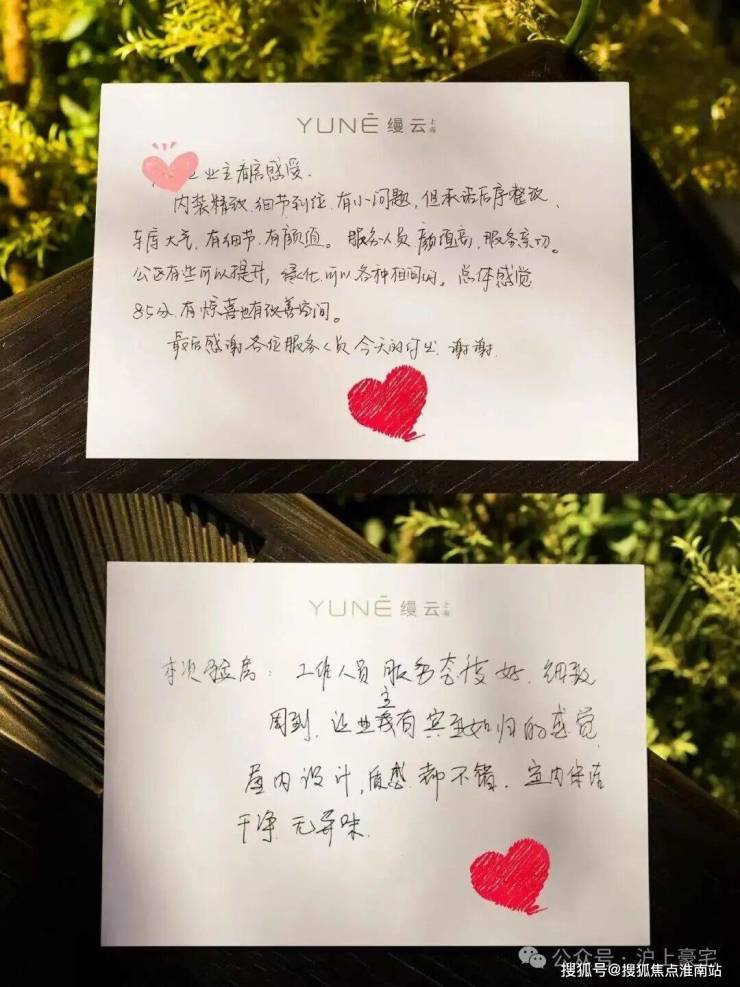 YUNĒ 缦云上海
业主看房感受.
内装精致.细节到位.有小问题,但承诺后序整改、
车库大气.有细节.有颜值。服务人员颜值高,服务亲切。
公区有些可以提升,绿化可以各种相间的。总体感觉
85分.有惊喜也有改善空间。
最后感谢各位服务人员今天的付出.谢谢.
YUNĒ 缦云上海
本次验房:工作人员服务态度好.细致
周到.让业主有宾至如归的感觉
屋内设计,质感都不错.室内保洁
干净无异味.
公众号·沪上豪宅
搜狐号@搜狐焦点淮南站